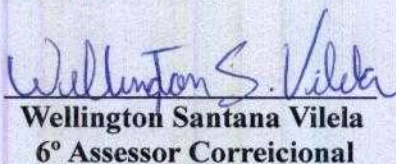 Wellington S. Vilela
Wellington Santana Vilela
6º Assessor Correicional